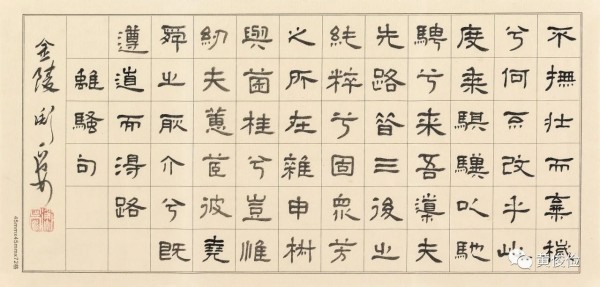 不撫壯而棄穢
兮何不改乎此
度乘騏驥以馳
騁兮來吾導夫
先路昔三後之
純粹兮固眾芳
之所在雜申椒
與菌桂兮豈惟
紉夫蕙茝彼堯
舜之耿介兮既
遵道而得路
離騷句
金陵
45mm×45mm×72格
黄俊俭